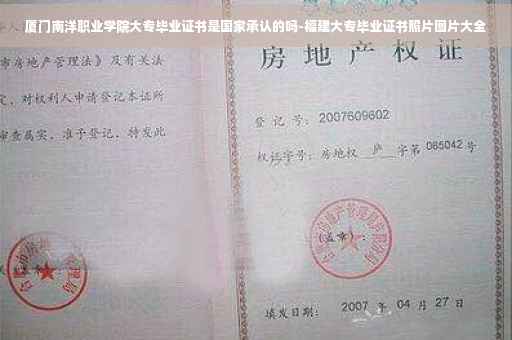 厦门南洋职业学院大专毕业证书是国家承认的吗-福建大专毕业证书照片图片大全
市房地产管理法》及有关法
定，对权利人申请登记本证所
审查属实，准予登记，特发此
房地产权证
登记号：2007609602
权证字号：房地权 庐 字第 085042 号
（盖章）：
填发日期：2007 年 04 月 27 日